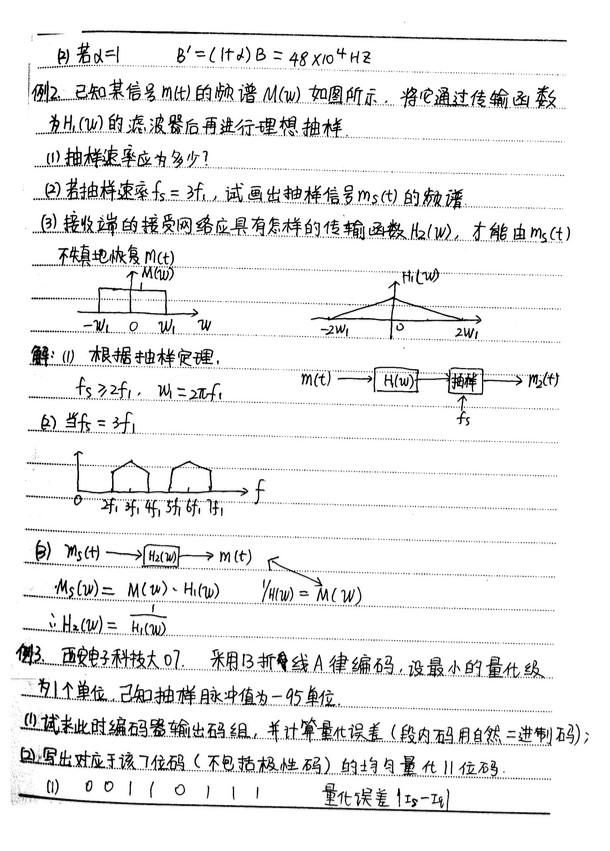 (2) 若α=1 B'=(1+α)B=48×10⁴HZ
例2. 已知某信号m(t)的频谱M(w)如图所示. 将它通过传输函数
为H₁(w)的滤波器后再进行理想抽样
(1) 抽样速率应为多少?
(2) 若抽样速率fs=3f₁, 试画出抽样信号ms(t)的频谱.
(3) 接收端的接受网络应具有怎样的传输函数H₂(w), 才能由ms(t)
不失真地恢复m(t)
M(w)
-w₁ 0 w₁ w
H₁(w)
-2w₁ 0 2w₁
解: (1) 根据抽样定理.
fs≥2f₁, w₁=2πf₁
m(t) H₁(w) 抽样 ms(t)
fs
(2) 当fs=3f₁
0 2f₁ 3f₁ 4f₁ 5f₁ 6f₁ 7f₁ f
(3) ms(t) H₂(w) m(t)
Ms(w)=M(w)·H₁(w) 1/H(w)=M(w)
∴H₂(w)=1/H₁(w)
例3. 西安电子科技大07. 采用13折线A律编码, 设最小的量化级
为1个单位. 已知抽样脉冲值为-95单位.
(1) 试求此时编码器输出码组, 并计算量化误差(段内码用自然二进制码);
(2) 写出对应于该7位码(不包括极性码)的均匀量化11位码.
(1) 0 0 1 1 0 1 1 1 量化误差|Is-I